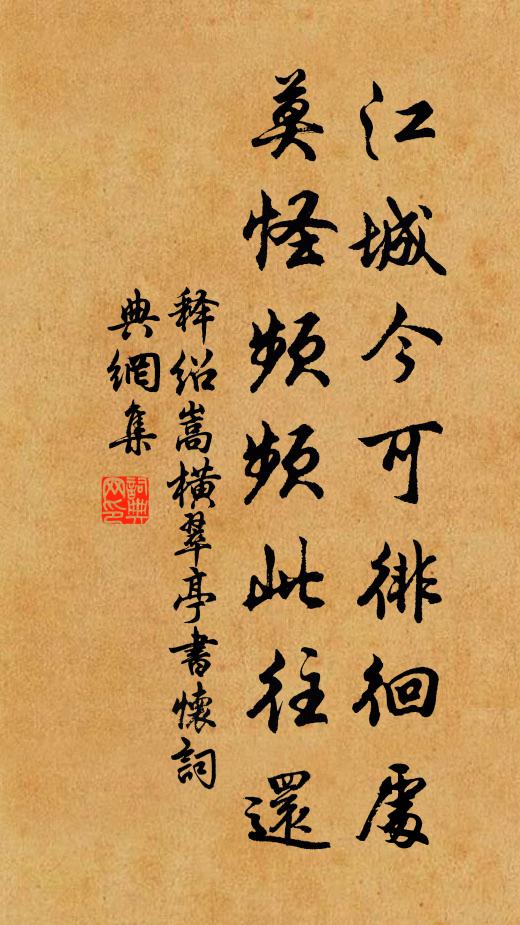 江城今可徘徊處
莫怪頻頻此往還
释紹嵩橫翠亭書懷詞
典網集
詞典
网印